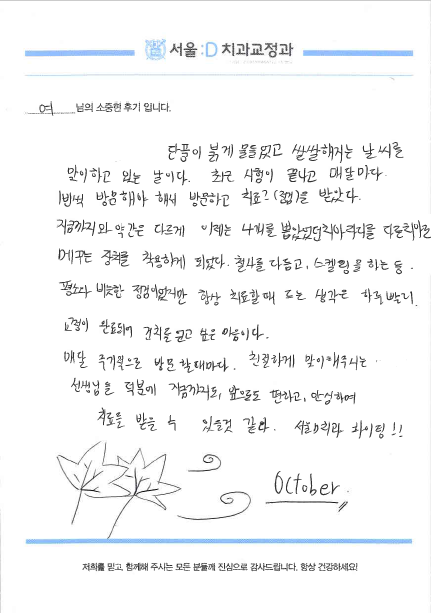 서울:D 치과교정과
여 님의 소중한 후기 입니다.
단풍이 붉게 물들었고 쌀쌀해지는 날씨를
맞이하고 있는 날이다. 최근 시험이 끝나고 매달마다.
1번씩 방문해야 해서 방문하고 치료?(점검)을 받았다.
지금까지와 약간은 다르게 이제는 4개를 뽑았었던 치아자리를 다른치아로
메꾸는 장치를 착용하게 되었다. 철사를 다듬고, 스켈링을 하는 등.
평소와 비슷한 점검이었지만 항상 치료할때 드는 생각은 하루빨리.
교정이 완료되어 건치를 얻고 싶은 마음이다.
매달 주기적으로 방문할때마다. 친절하게 맞이해주시는
선생님들 덕분에 지금까지도, 앞으로도 편하고, 안심하여
치료를 받을 수 있을것 같다. 서울D치과 화이팅!!
October.
저희를 믿고, 함께해 주시는 모든 분들께 진심으로 감사드립니다. 항상 건강하세요!